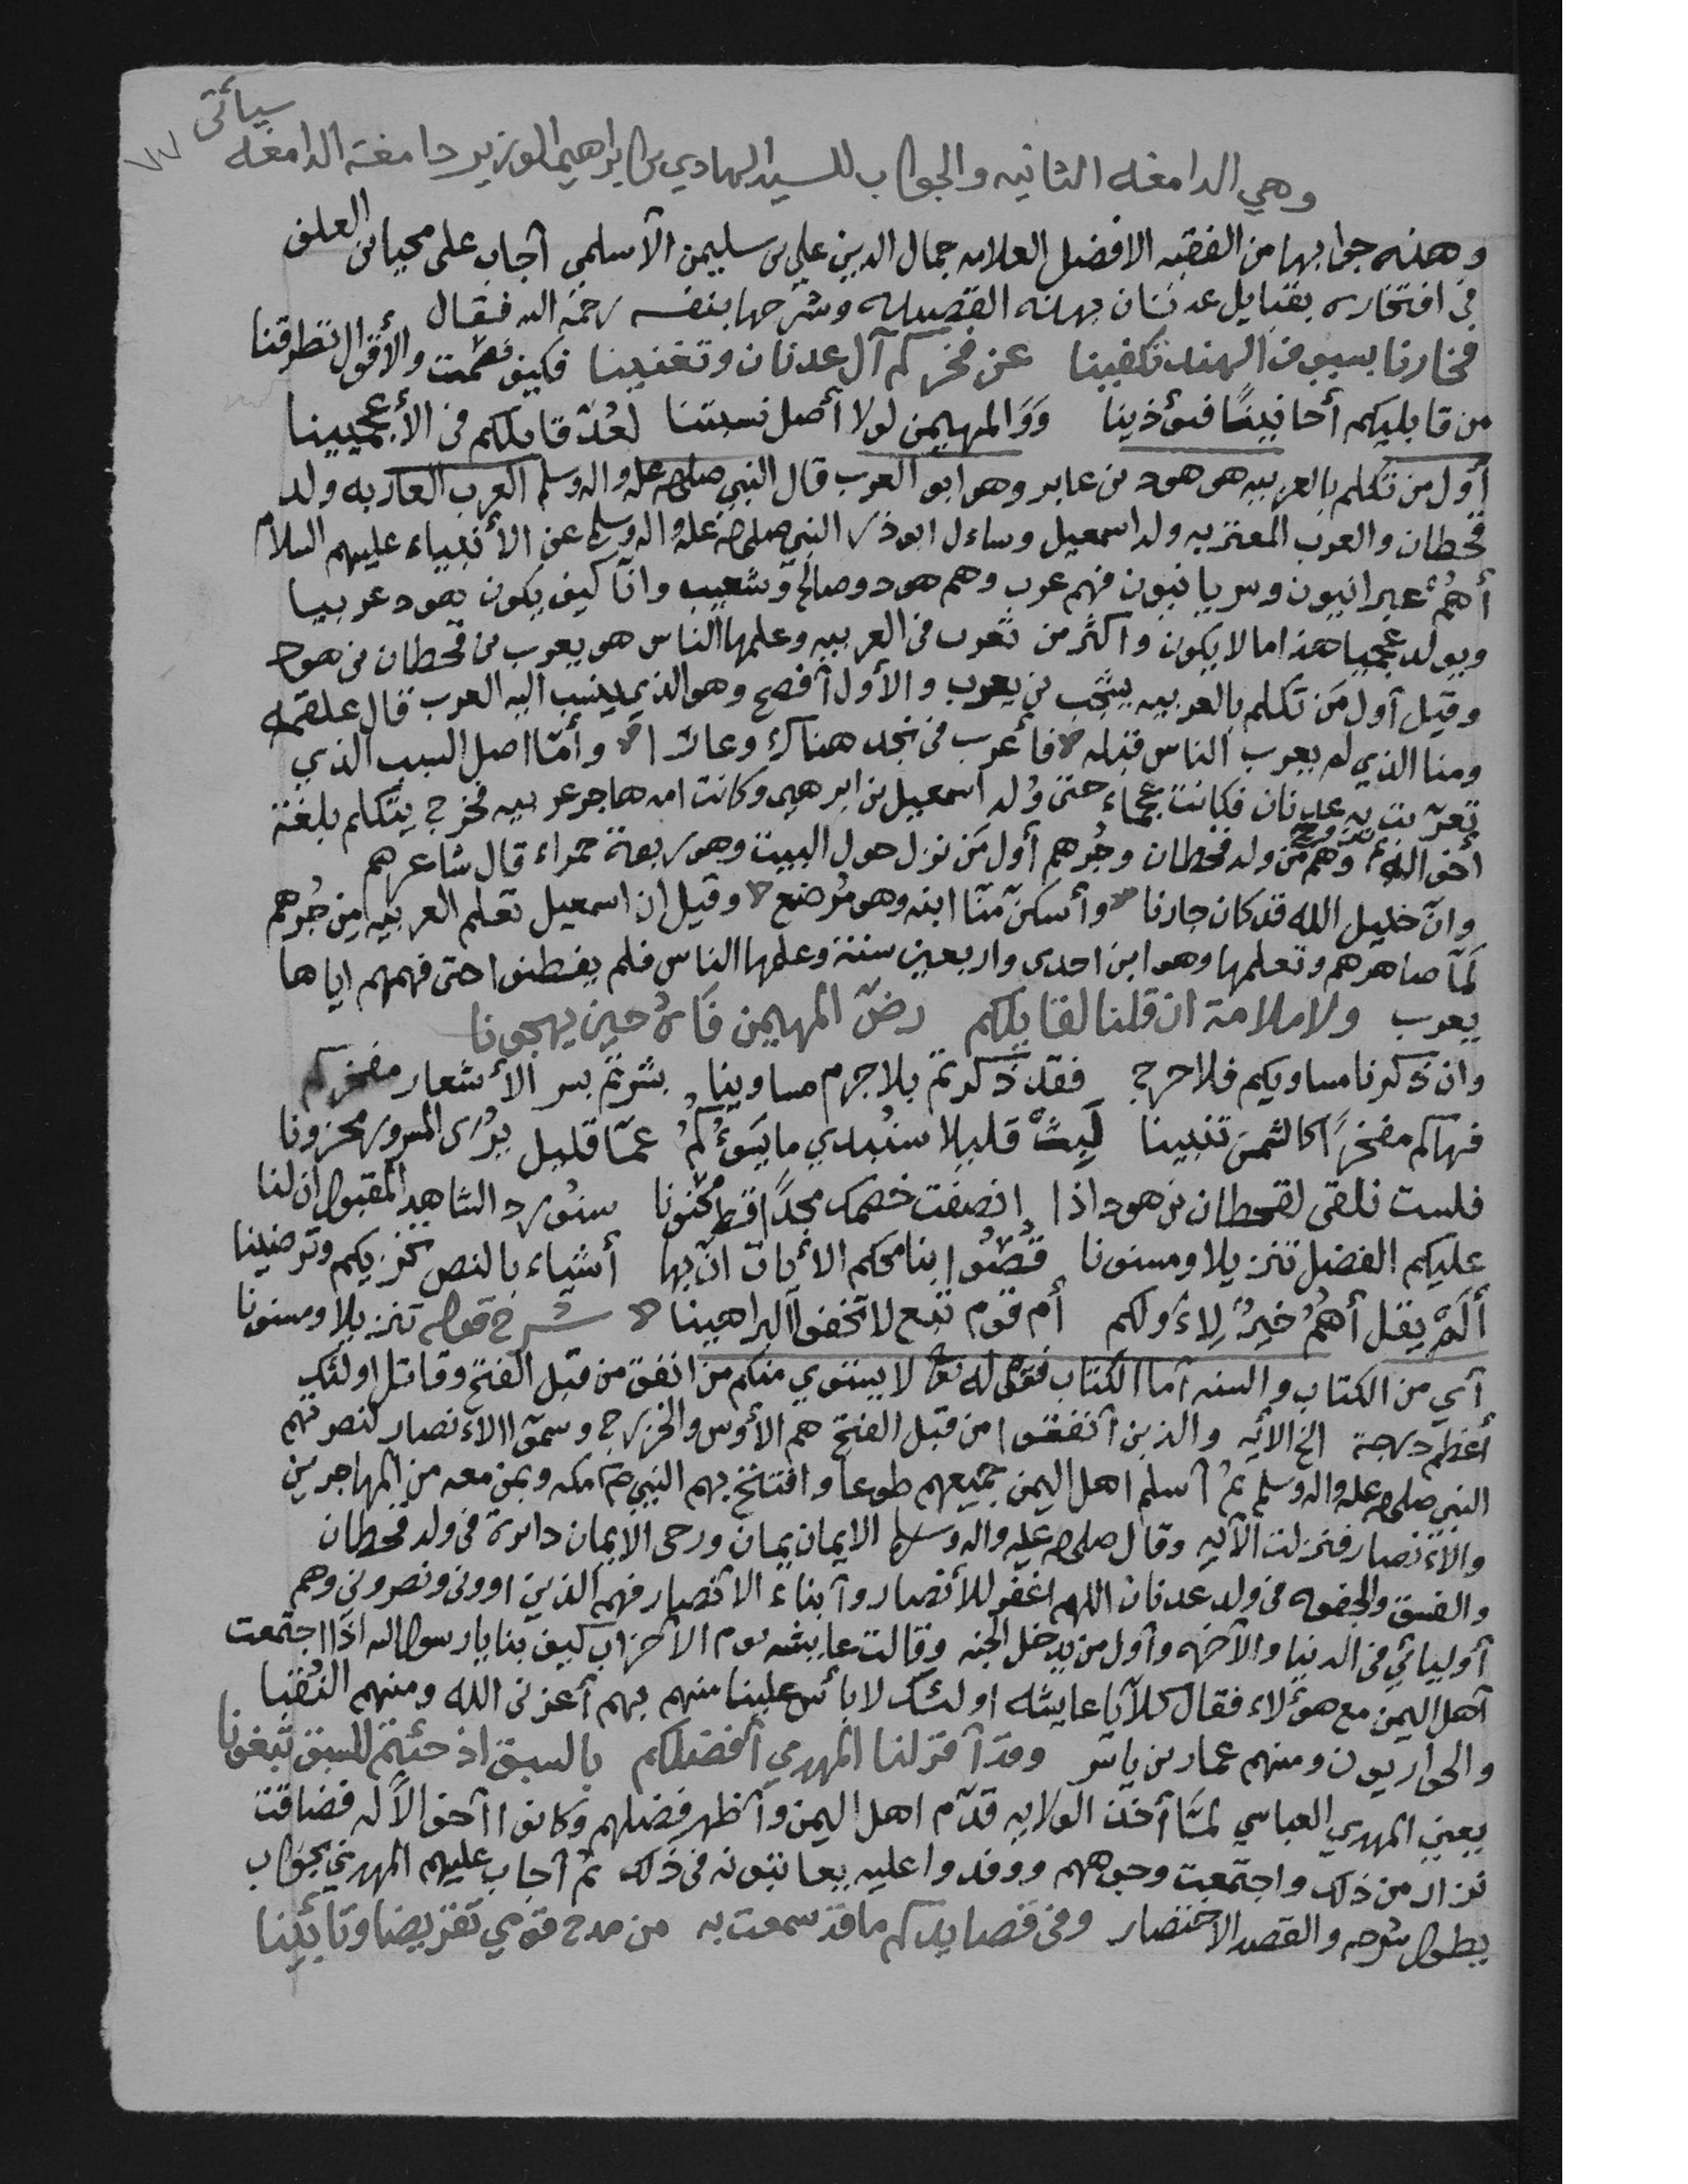 سيأتي
وهي الدامغه الثانيه والجواب للسيد الهادي بن ابراهيم الوزير دامغة الدامغه
وهذه جوابها من الفقيه الافضل العلامه جمال الدين علي بن سليمن الأسلمي أجاب على محيا بن العلف
في افتخاره بقبايل عدنان بهذه القصيده وشرحها بنفسه رحمه الله فقال
فخارنا بسيوف الهند تكفينا عن فخركم آل عدنان وتغنينا فكيف قمت والأقوال تطرقنا
من قايليكم أحانينًا فتؤذينا وَوَالمهيمن لولا أصل نسبتنا لعُدّ قايلكم في الأعجميينا
أول من تكلم بالعربيه هو هود بن عابر وهو ابو العرب قال النبي صلى الله عليه واله وسلم العرب العاربه ولد
قحطان والعرب المعتربه ولد اسمعيل وساءل ابو ذر النبي صلى الله عليه واله وسلم عن الأنبياء عليهم السلام
أهُمْ عبرانيون وسريانيون فهم عرب وهم هود وصالح وشعيب وانّا كيف يكون هود عربيا
ويولد عجميا هذا ما لا يكون واكثر من تعرب في العربيه وعلمها الناس هو يعرب بن قحطان بن هود
وقيل أول مَن تكلم بالعربيه يشجب بن يعرب والأول أفصح وهو الذي ينسب اليه العرب قال علقمه
ومنا الذي لم يعرب الناس قبله فأعرب في نجد هناك وعارا وأمّا اصل السبب الذي
تعرّبت به عدنان فكانت عجماء حتى وُلد اسمعيل بن ابرهيم وكانت امه هاجر عربيه فخرج يتكلم بلغة
أخواله وهم من ولد قحطان وجُرهم أول مَن نزل حول البيت وهو ربعة حمراء قال شاعرهم
وانّ خليل الله قد كان جارنا وأسكن منّا ابنه وهو مُرضع وقيل ان اسمعيل تعلم العربيه من جُرهم
لمّا صاهرهم وتعلمها وهو ابن احدى واربعين سنة وعلمها الناس فلم يفطنوا حتى فهمهم اياها
يعرب ولا ملامة ان قلنا لقايلكم رضّ المهيمن فَاهُ حين يهجونا
وان ذكرنا مساويكم فلا حرج فقد ذكرتم بلا جرم مساوينا نشرتم بسر الأشعار مفخركم
فهاكم مفخرًا كالشمس تبيينا لَبِثْ قليلا سنُبدي ما يَسُوءُكُمُ عمّا قليل يُرى المسرور محزونا
فلست تلقى لقحطان بن هود اذا انصفت خصمك مجدًا قط مكنونا سنورد الشاهد المقبول ان لنا
عليكم الفضل تنزيلا ومسنونا قُصُّوا بنا محكم الأيات انّ بها أشياء بالنص تخزيكم وترضينا
ألَمْ يقل أهُمُ خيرٌ لِاءولكم أم قوم تبع لا تخفوا البراهينا شرح قوله تنزيلا ومسنونا
أي من الكتاب والسنه أما الكتاب فقوله تعالى لا يستوي منكم من انفق من قبل الفتح وقاتل اولئك
أعظم درجة الخ الأيه والذين أنفقوا من قبل الفتح هم الأوس والخزرج وسمّوا الاءنصار لنصرتهم
النبي صلى الله عليه واله وسلم ثم أسلم اهل اليمن جميعهم طوعا وافتتح بهم النبي صلعم مكه وبمن معه من المهاجرين
والاءنصار فنزلت الآيه وقال صلى الله عليه واله وسلم الايمان يمان ورحى الايمان دائرة في ولد قحطان
والفسق والجفوه في ولد عدنان اللهم اغفر للأنصار وأبناء الانصار فهم الذين اووني ونصروني وهم
أوليائي في الدنيا والآخره وأول من يدخل الجنه وقالت عايشه يوم الأحزاب كيف بنا يا رسول الله اذا اجتمعت
أهل اليمن مع هؤلاء فقال كلّا يا عايشه اولئك لا بأس علينا منهم بهم أعزني الله ومنهم النُقبا
والحواريون ومنهم عمار بن ياسر وقد أقر لنا المهدي أفضلكم بالسبق اذ جئتم للسبق تبغونا
يعني المهدي العباسي لمّا أخذ الولايه قدّم اهل اليمن وأظهر فضلهم وكانوا أخوالًا له فضاقت
نزار من ذلك واجتمعت وجوههم ووفدوا عليه يعاتبونه في ذلك ثم أجاب عليهم المهدي بجواب
يطول شرحه والقصد الاختصار وفي قصايدكم ما قد سمعت به من مدح قومي تقريضا وتأبينا